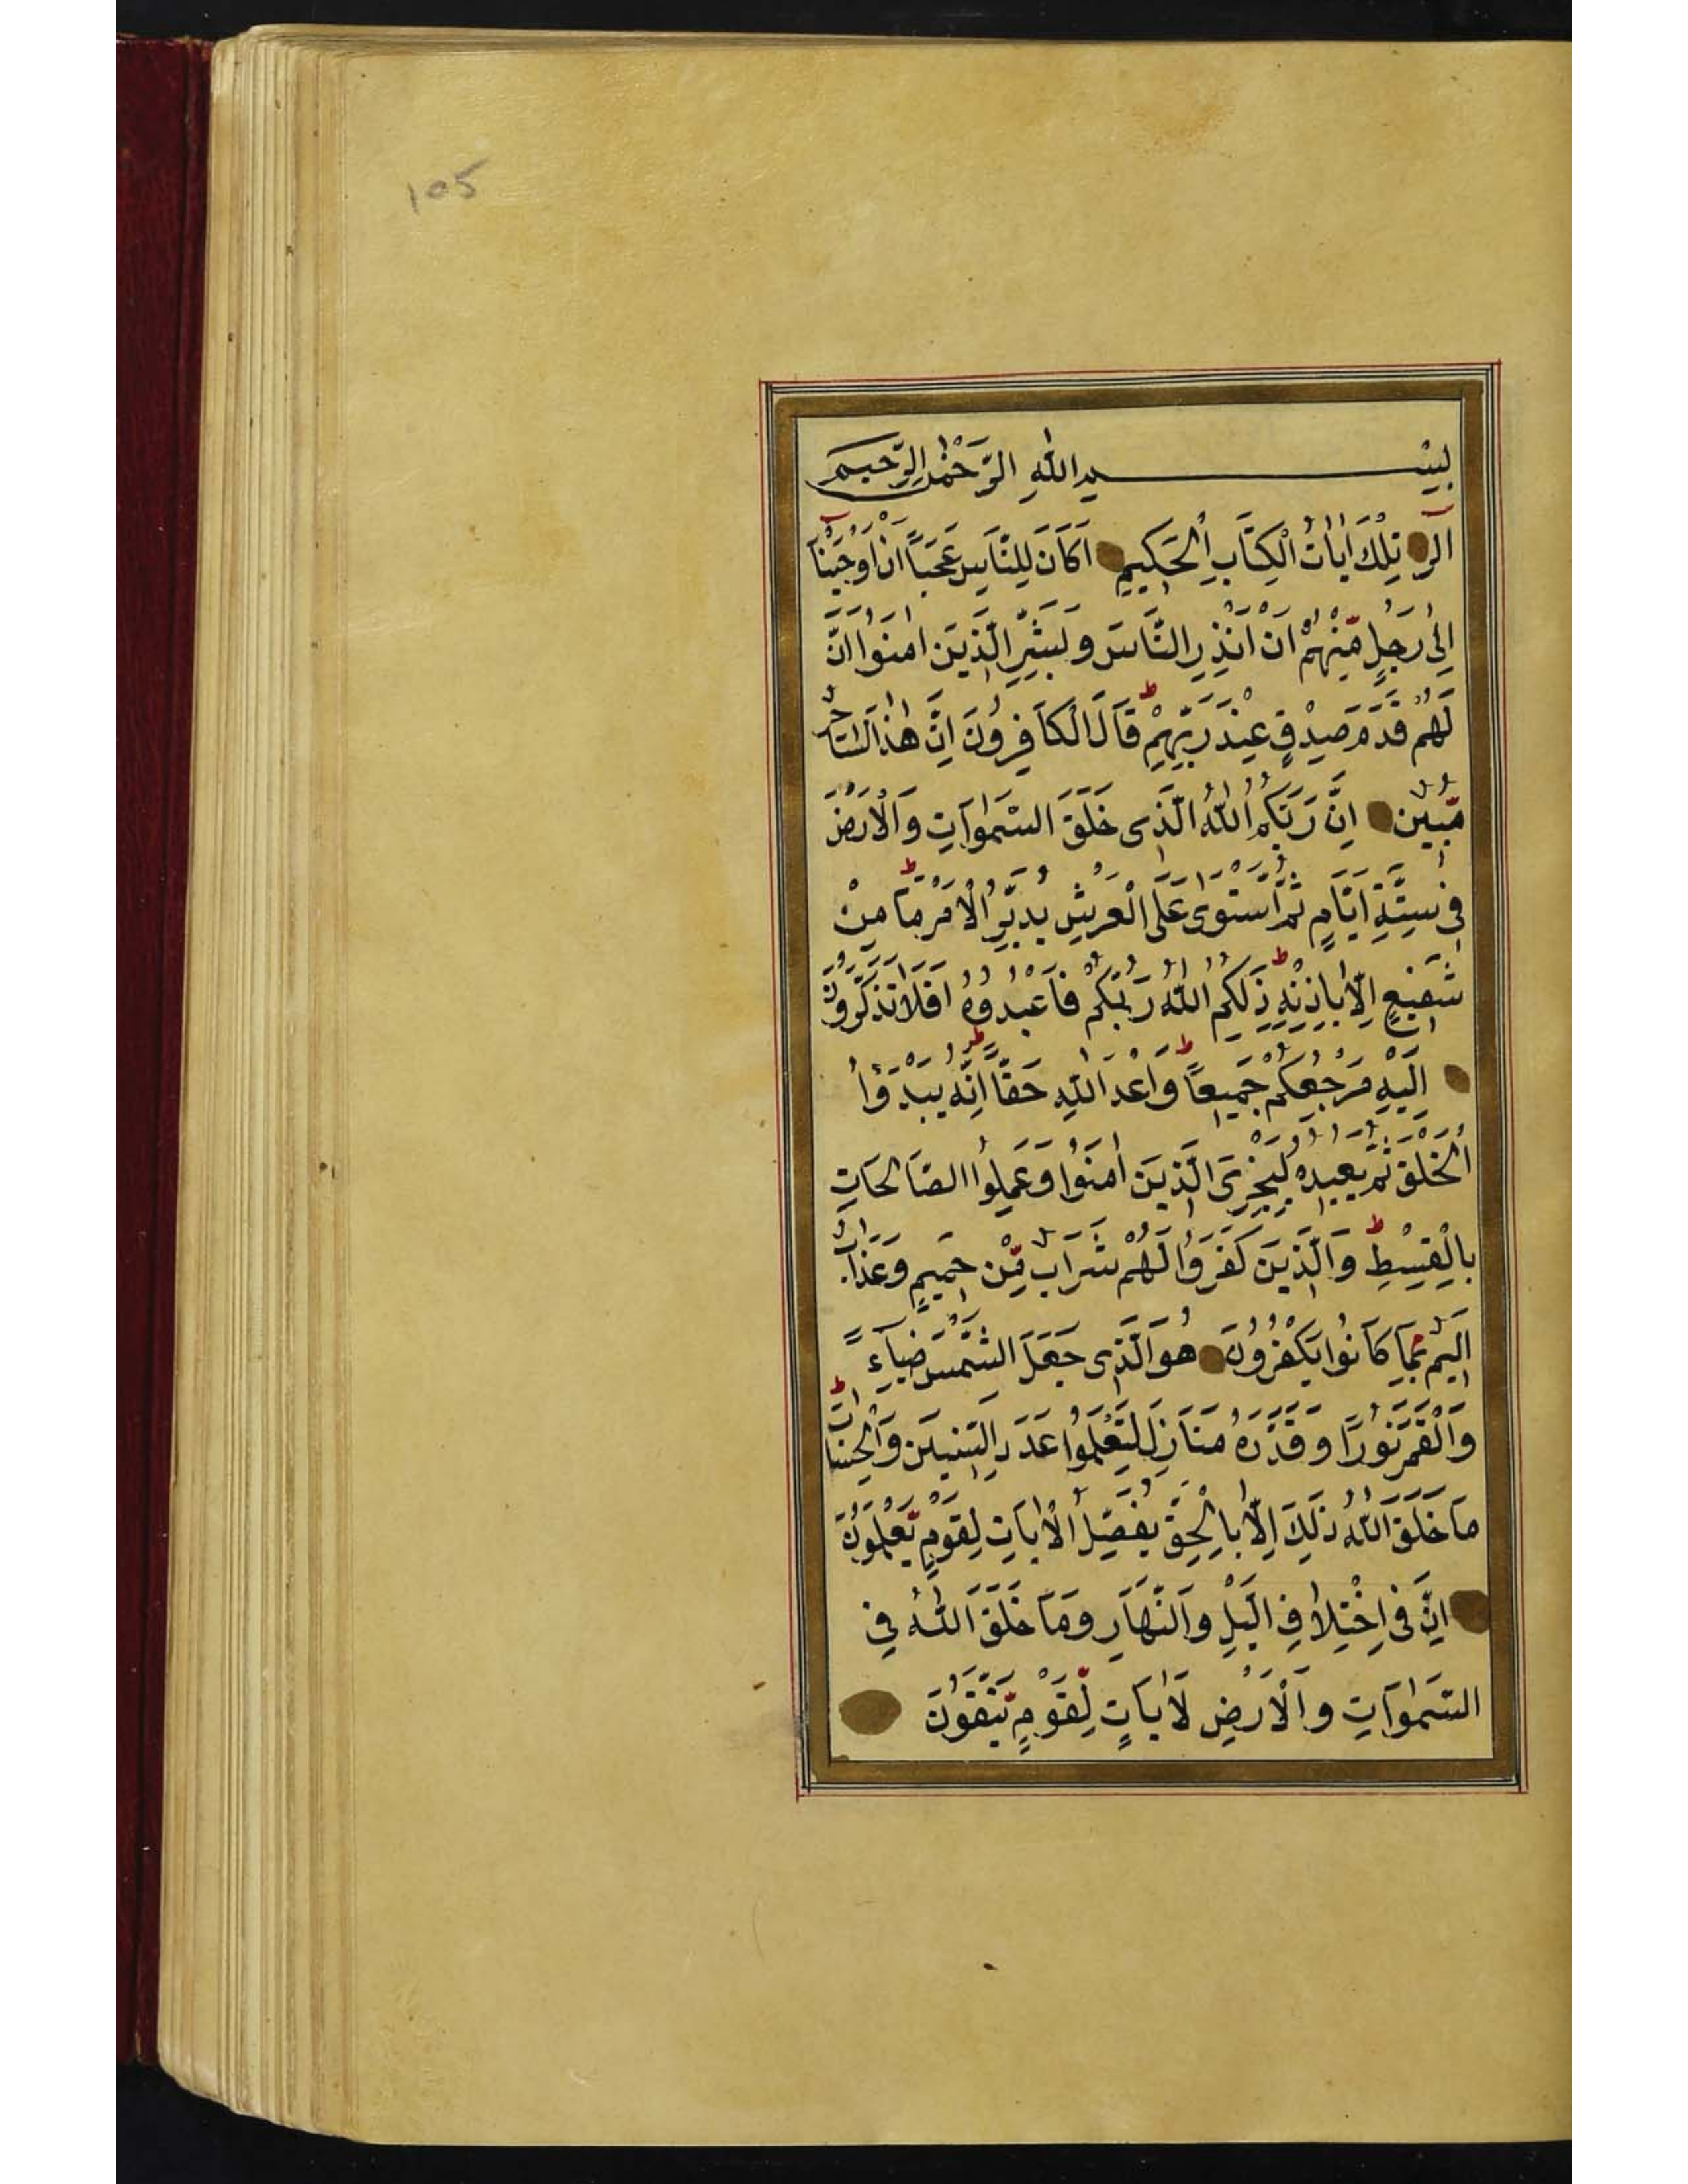 105
بِسْمِ اللهِ الرَّحْمٰنِ الرَّحِيمِ
الٓرٰ تِلْكَ اٰيَاتُ الْكِتَابِ الْحَكِيمِ اَكَانَ لِلنَّاسِ عَجَبًا اَنْ اَوْحَيْنَآ
اِلٰى رَجُلٍ مِّنْهُمْ اَنْ اَنْذِرِ النَّاسَ وَبَشِّرِ الَّذِينَ اٰمَنُوا اَنَّ
لَهُمْ قَدَمَ صِدْقٍ عِنْدَ رَبِّهِمْ ط قَالَ الْكَافِرُونَ اِنَّ هٰذَا لَسَاحِرٌ
مُّبِينٌ اِنَّ رَبَّكُمُ اللهُ الَّذِى خَلَقَ السَّمٰوَاتِ وَالْاَرْضَ
فِى سِتَّةِ اَيَّامٍ ثُمَّ اسْتَوٰى عَلَى الْعَرْشِ يُدَبِّرُ الْاَمْرَ ط مَا مِنْ
شَفِيعٍ اِلَّا بِاِذْنِهِ ط ذٰلِكُمُ اللهُ رَبُّكُمْ فَاعْبُدُوهُ اَفَلَا تَذَكَّرُونَ
اِلَيْهِ مَرْجِعُكُمْ جَمِيعًا ط وَاعْدَ اللهِ حَقًّا ط اِنَّهُ يَبْدَؤُا
الْخَلْقَ ثُمَّ يُعِيدُهُ لِيَجْزِىَ الَّذِينَ اٰمَنُوا وَعَمِلُوا الصَّالِحَاتِ
بِالْقِسْطِ ط وَالَّذِينَ كَفَرُوا لَهُمْ شَرَابٌ مِّنْ حَمِيمٍ وَعَذَابٌ
اَلِيمٌ بِمَا كَانُوا يَكْفُرُونَ هُوَ الَّذِى جَعَلَ الشَّمْسَ ضِيَآءً
وَالْقَمَرَ نُورًا وَقَدَّرَهُ مَنَازِلَ لِتَعْلَمُوا عَدَدَ السِّنِينَ وَالْحِسَابَ ط
مَا خَلَقَ اللهُ ذٰلِكَ اِلَّا بِالْحَقِّ يُفَصِّلُ الْاٰيَاتِ لِقَوْمٍ يَّعْلَمُونَ
اِنَّ فِى اخْتِلَافِ الَّيْلِ وَالنَّهَارِ وَمَا خَلَقَ اللهُ فِى
السَّمٰوَاتِ وَالْاَرْضِ لَاٰيَاتٍ لِّقَوْمٍ يَّتَّقُونَ